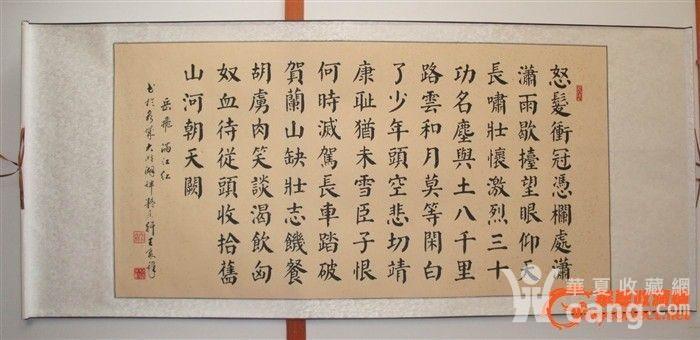 怒髮衝冠憑欄處瀟
瀟雨歇擡望眼仰天
長嘯壯懷激烈三十
功名塵與土八千里
路雲和月莫等閑白
了少年頭空悲切靖
康耻猶未雪臣子恨
何時滅駕長車踏破
賀蘭山缺壯志饑餐
胡虜肉笑談渴飲匈
奴血待從頭收拾舊
山河朝天闕
岳飛 滿江紅
书於泉城大明湖畔
華夏收藏網
cang.com